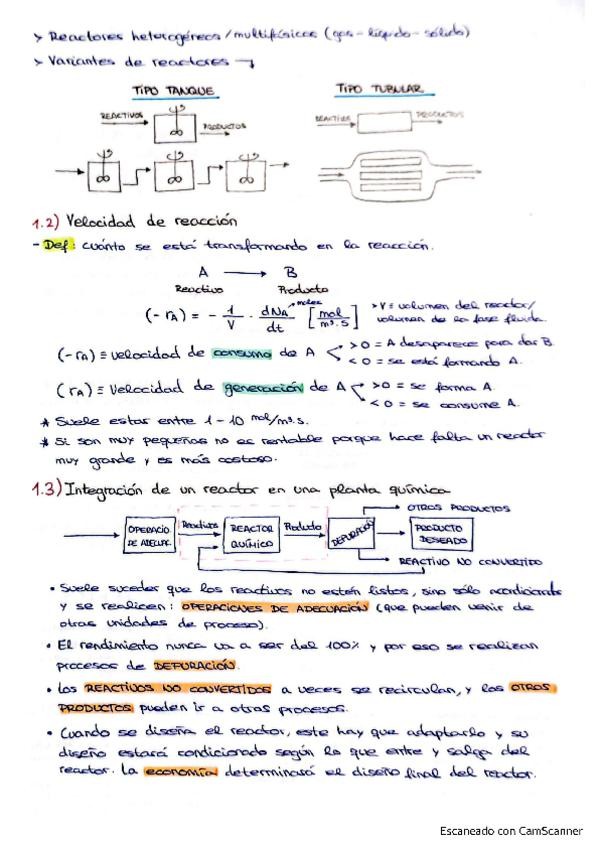 > Reactores heterogéneos/multifásicos (gas-líquido-sólido)
> Variantes de reactores →
TIPO TANQUE
TIPO TUBULAR
REACTIVOS
PRODUCTOS
REACTIVOS
PRODUCTOS
1.2) Velocidad de reacción
- Def: cuánto se está transformando en la reacción.
A → B
Reactivo Producto
(-rA) = - 1/V · dNA/dt [mol/m³·s]
moles
> V ≡ volumen del reactor/
volumen de la fase fluida.
(-rA) ≡ velocidad de consumo de A
>0 = A desaparece para dar B.
<0 = se está formando A.
(rA) ≡ velocidad de generación de A
>0 = se forma A.
<0 = se consume A.
* Suele estar entre 1-10 mol/m³s.
* Si son muy pequeños no es rentable porque hace falta un reactor
muy grande y es más costoso.
1.3) Integración de un reactor en una planta química
OPERACIO
DE ADECUAC.
Reactivos
REACTOR
QUÍMICO
Producto
DEPURACIÓN
OTROS PRODUCTOS
PRODUCTO
DESEADO
REACTIVO NO CONVERTIDO
• Suele suceder que los reactivos no estén listos, sino sólo acondicionarle
y se realicen: OPERACIONES DE ADECUACIÓN (que pueden venir de
otras unidades de proceso).
• El rendimiento nunca va a ser del 100% y por eso se realizan
procesos de DEPURACIÓN.
• Los REACTIVOS NO CONVERTIDOS a veces se recirculan, y los OTROS
PRODUCTOS pueden ir a otros procesos.
• Cuando se diseña el reactor, este hay que adaptarlo y su
diseño estará condicionado según lo que entre y salga del
reactor. La economía determinará el diseño final del reactor.
Escaneado con CamScanner